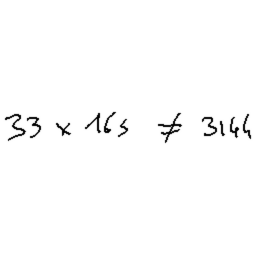 33 × 165 ≠ 3144